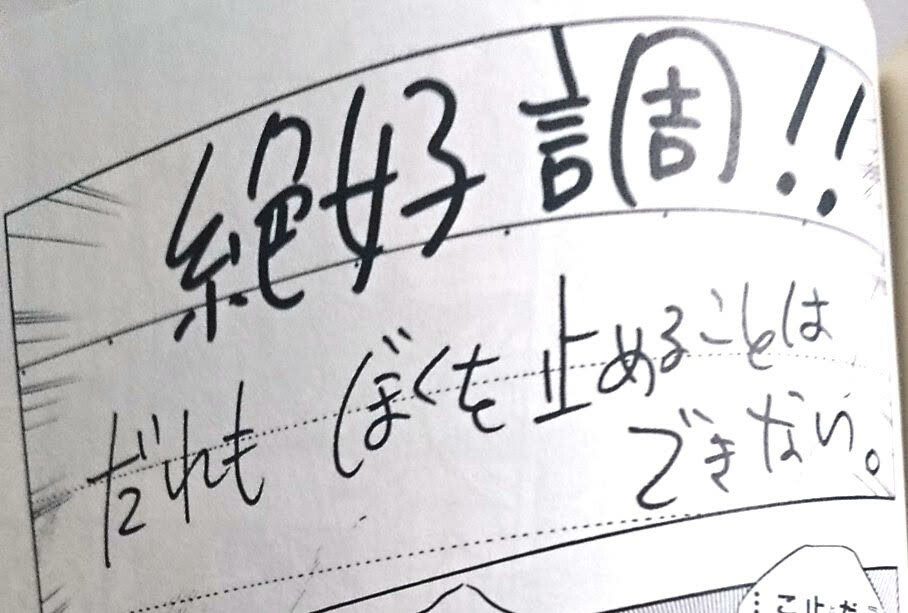 絶好調!!
だれもぼくを止めることは
できない。